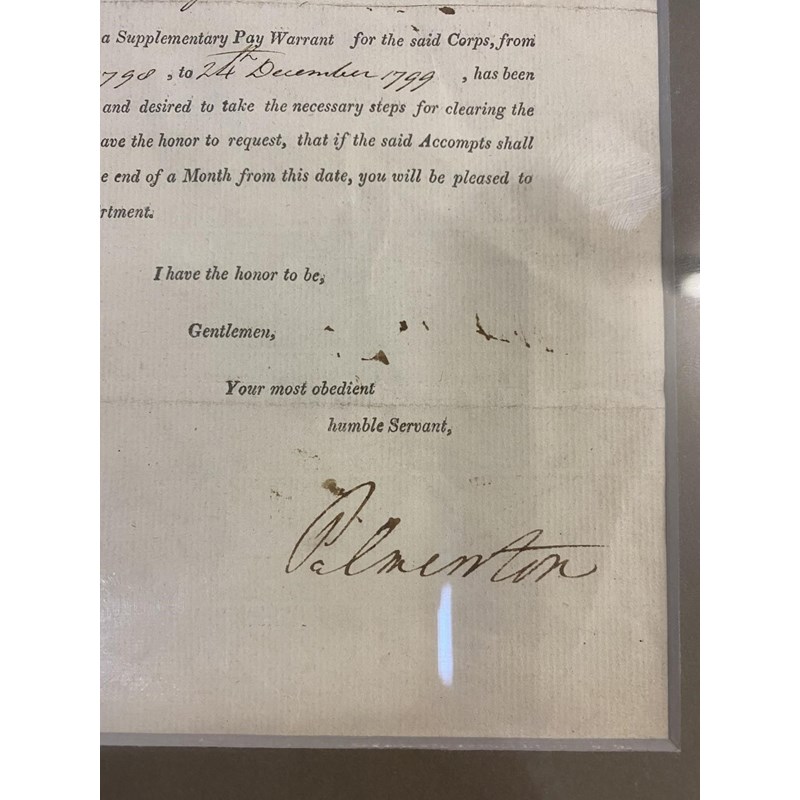 a Supplementary Pay Warrant for the said Corps, from
798, to 24th December 1799, has been
and desired to take the necessary steps for clearing the
ave the honor to request, that if the said Accompts shall
e end of a Month from this date, you will be pleased to
rtment.
I have the honor to be,
Gentlemen,
Your most obedient
humble Servant,
Palmerston